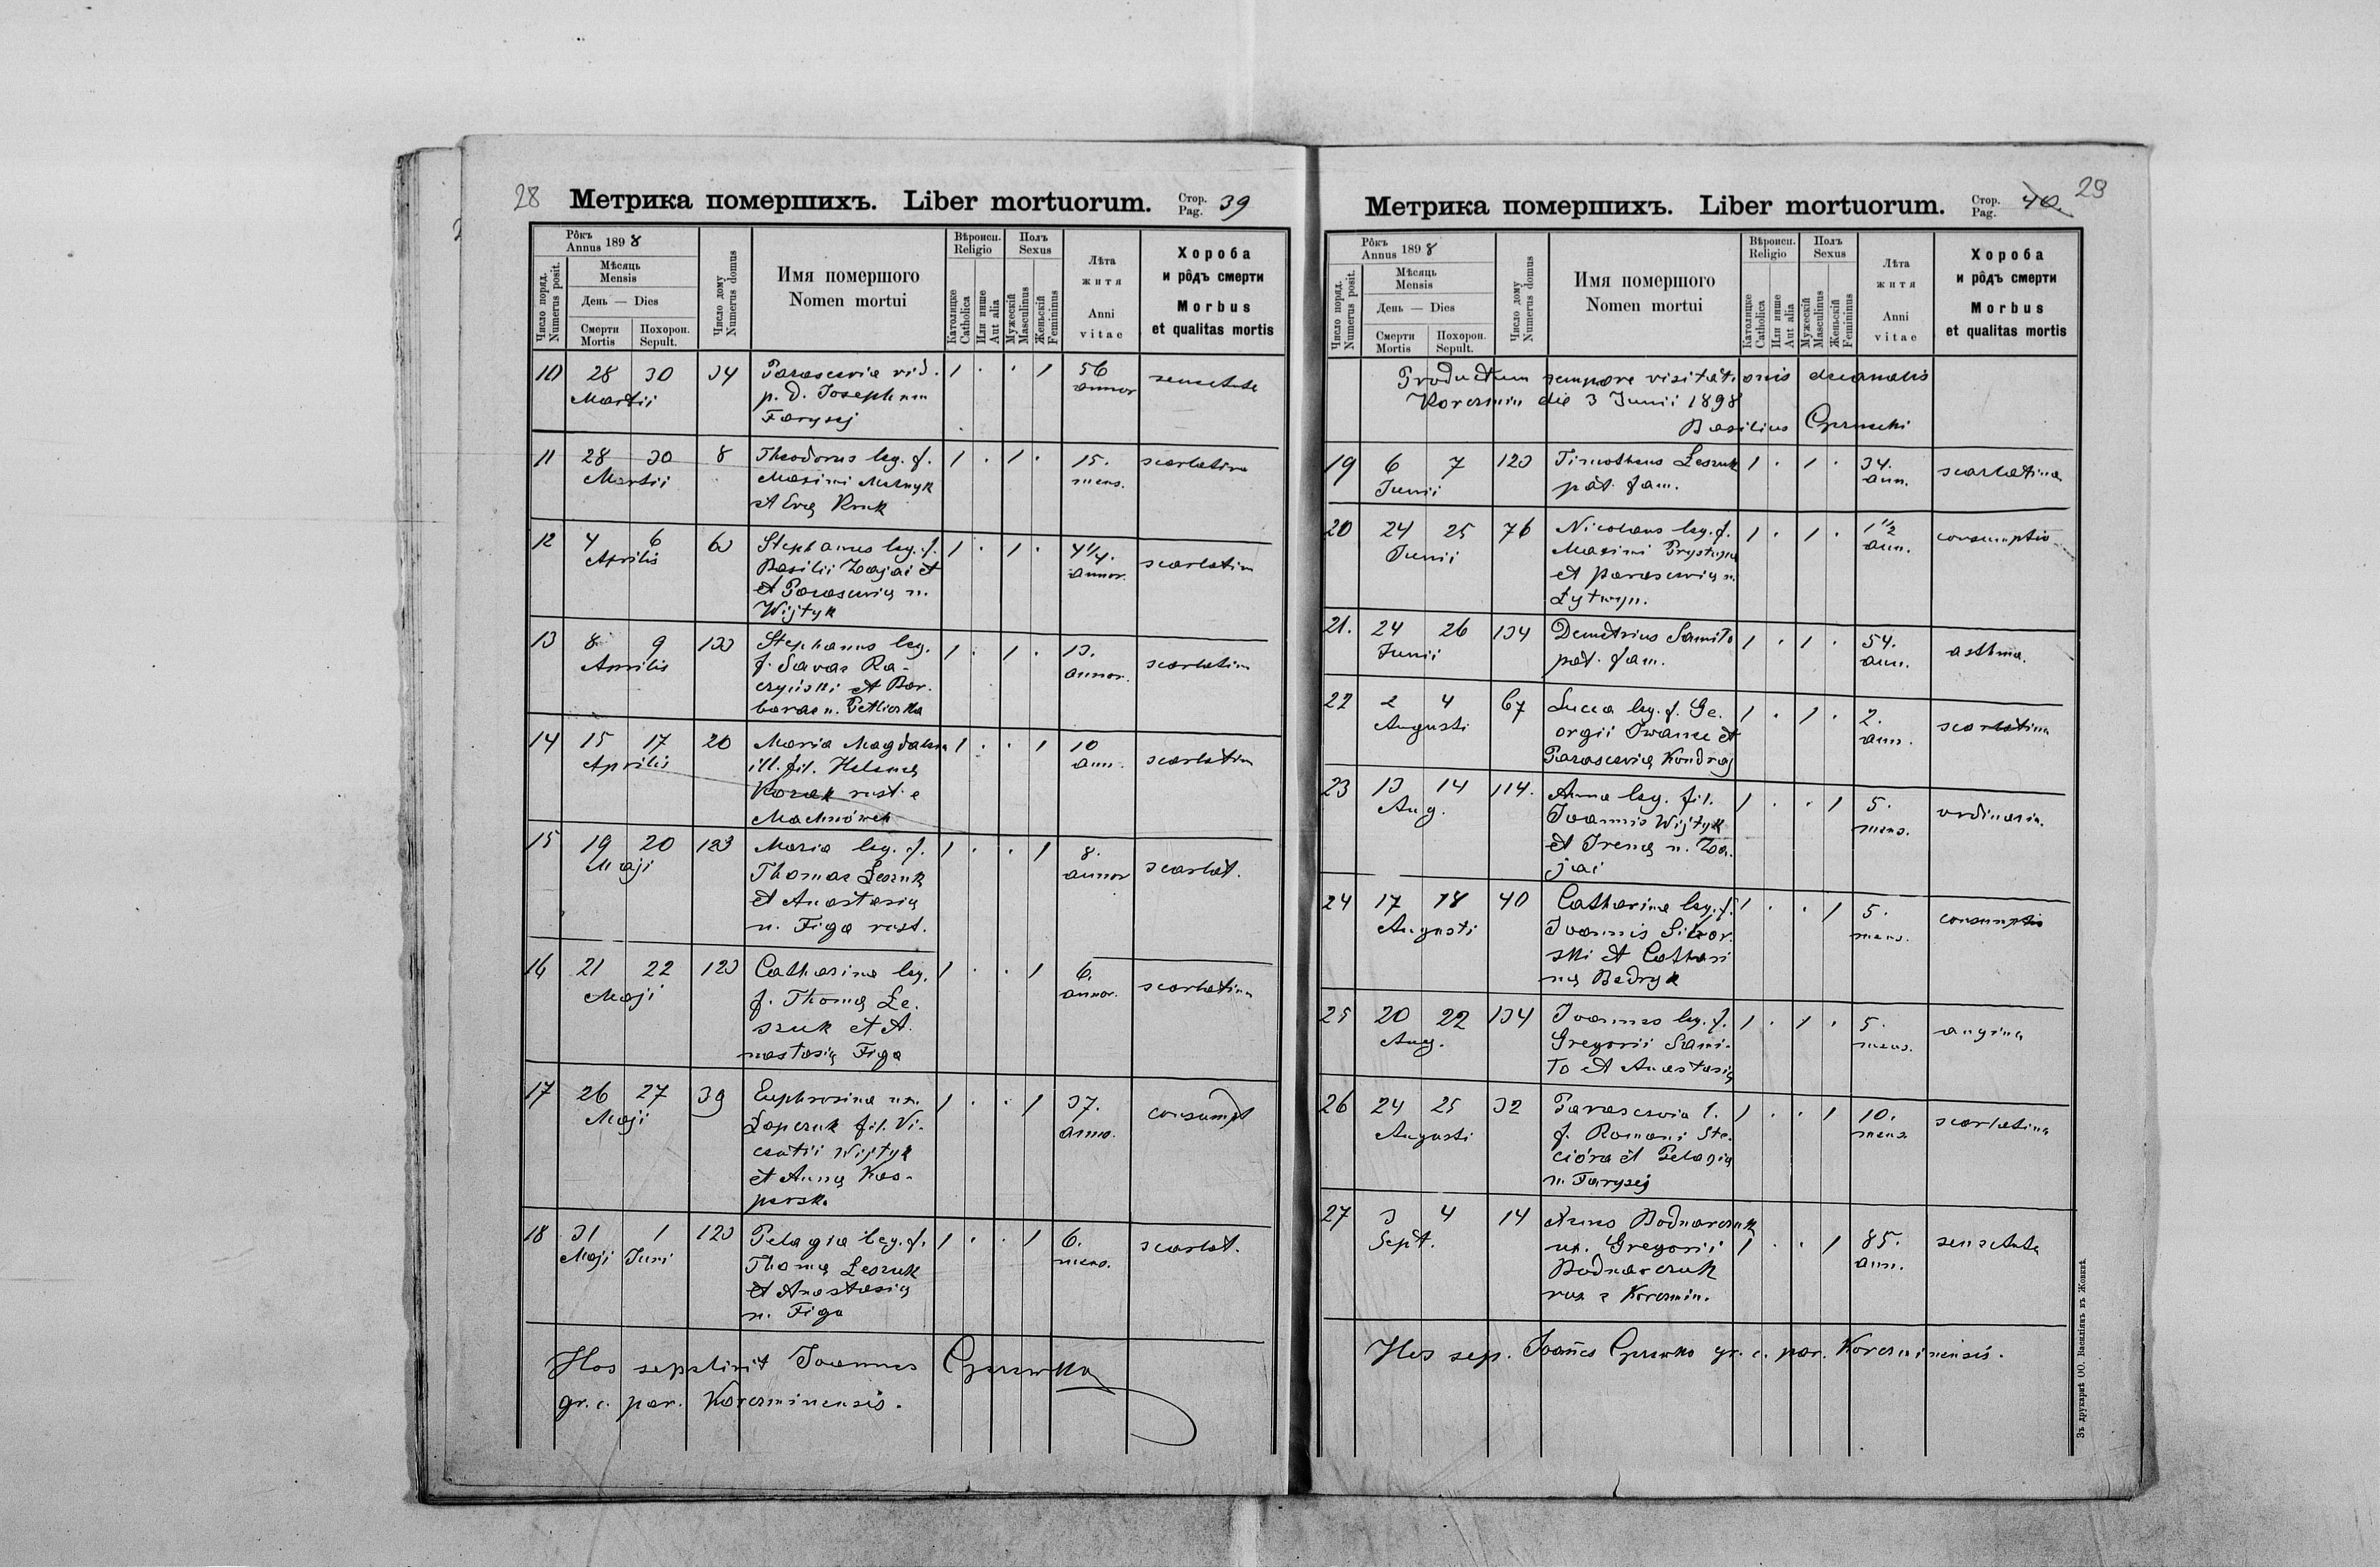 28 Метрика помершихъ. Liber mortuorum. Стор. Pag. 39
Рôкъ Annus 1898
Мѣсяць Mensis
День — Dies
Число поряд. Numerus posit.
Смерти Mortis
Похорон. Sepult.
Число дому Numerus domus
Имя помершого
Nomen mortui
Вѣроисп. Religio
Католицке Catholica
Или инше Aut alia
Полъ Sexus
Мужескій Masculinus
Женьскій Femininus
Лѣта житя
Anni vitae
Хороба
и рôдъ смерти
Morbus
et qualitas mortis
10 28 30 34 Parascevia vid. 1 . . 1 56 senectute
Martii p. d. Josephum annor
Farysej
11 28 30 8 Theodorus leg. f. 1 . 1 . 15. scarlatina
Martii Maximi Melnyk mens.
et Evą Kruk
12 4 6 63 Stephanus leg. f. 1 . 1 . 4 1/4. scarlatin
Aprilis Basilii Zajai et annor.
et Parascevią n.
Wijtyk
13 8 9 133 Stephanus leg. 1 . 1 . 13. scarlatin
Aprilis f. Savae Ra- annor.
czyński et Bar.
barae n.
14 15 17 20 Maria Magdalena 1 . . 1 10 scarlatin
Aprilis ill. fil. Heleną ann.
Kozak rust. e
Machnówek
15 19 20 123 Maria leg. f. 1 . . 1 8. scarlat.
Maji Thomae Leszuk annor
et Anastasią
n. Figa rust.
16 21 22 123 Catharina leg. 1 . . 1 6. scarlatina
Maji f. Thomą Le. annor.
szuk et A.
nastasią Figa
17 26 27 39 Euphrosina ux. 1 . . 1 37. consumpt
Maji Łopczuk fil. Vi- anno.
centii Wijtyk
et Anną Kas-
perska
18 31 1 123 Pelagia leg. f. 1 . . 1 6. scarlat.
Maji Juni Thomą Leszuk mens.
et Anastasią
n. Figa
Hos sepelivit Joannes
gr. c. par. Korczminensis.
Метрика помершихъ. Liber mortuorum. Стор. Pag. 40. 29
Рôкъ Annus 1898
Мѣсяць Mensis
День — Dies
Число поряд. Numerus posit.
Смерти Mortis
Похорон. Sepult.
Число дому Numerus domus
Имя помершого
Nomen mortui
Вѣроисп. Religio
Католицке Catholica
Или инше Aut alia
Полъ Sexus
Мужескій Masculinus
Женьскій Femininus
Лѣта житя
Anni vitae
Хороба
и рôдъ смерти
Morbus
et qualitas mortis
Productum tempore visitationis decanalis
Korczmin die 3 Junii 1898
Basilius
19 6 7 123 Timotheus Leszuk 1 . 1 . 34. scarlatina
Junii pat. fam. ann.
20 24 25 76 Nicolaus leg. f. 1 . 1 . 1 1/2 consumptio
Junii Maximi ann.
et parascevią n.
Łytwyn.
21. 24 26 134 Demetrius Samiło 1 . 1 . 54. asthma.
Junii pat. fam. ann.
22 2 4 67 Lucca leg. f. Ge. 1 . 1 . 2. scarlatina
Augusti orgii et ann.
Parascevią Kondraj
23 13 14 114. Anna leg. fil. 1 . . 1 5. ordinaria.
Aug. Joannis Wijtyk mens.
et Irenę n. Za.
jai
24 17 18 40 Catharina leg. f. 1 . . 1 5. consumptio
Augusti Joannis Sikor. mens.
ski et Cathari
ną Bedryk
25 20 22 134 Joannes leg. f. 1 . 1 . 5. angina
Aug. Gregorii Sami- mens.
ło et Anastasią
26 24 25 32 Parascevia l. 1 . . 1 10. scarlatina
Augusti f. Romani Ste. mens
cióra et Pelagią
n. Farysej
27 3 4 14 Bodnarczuk
Sept. ux. Gregorii 1 . . 1 85. senectute
Bodnarczuk ann.
Korczmin.
Hos sep. Joañes gr. c. par. Korczminensis.
Зъ друкарнѣ ОО. Василіянъ въ Жовквѣ.